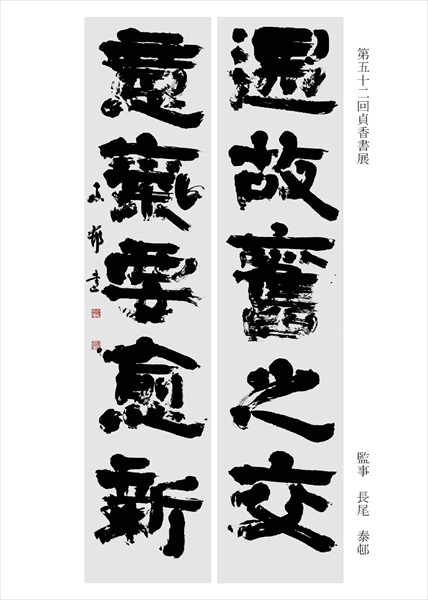 第五十二回貞香書展
遇故舊之交
意氣要愈新
監事 長尾 泰邨